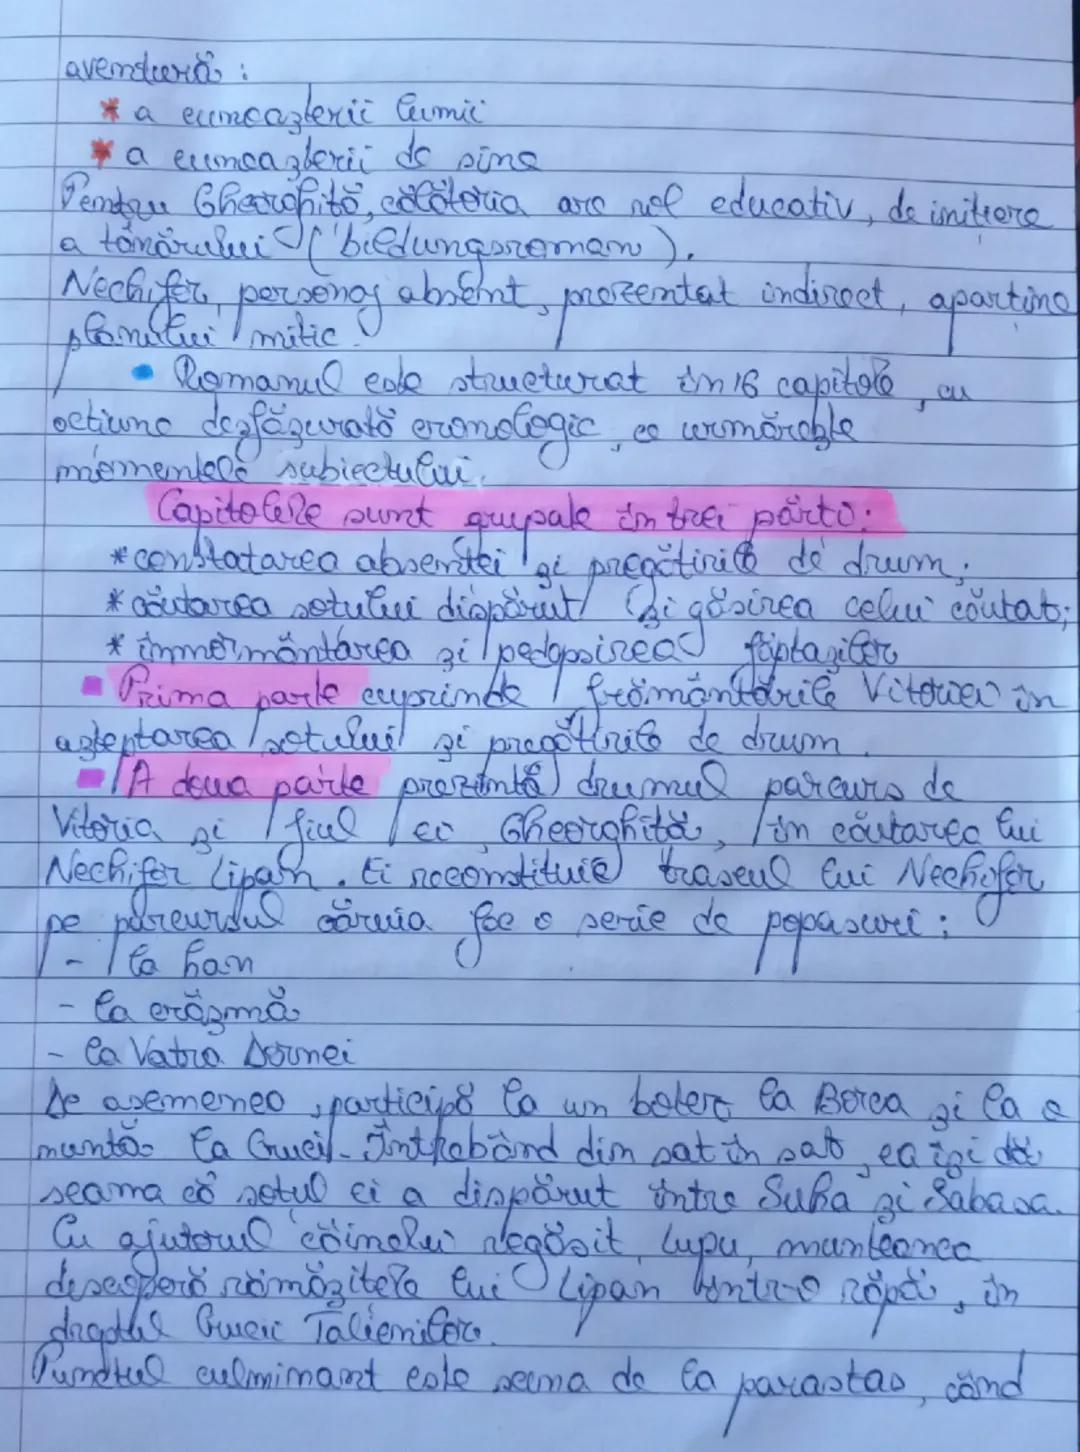 aventură :
* a cunoașterii lumii
* a cunoașterii de sine
Pentru Gheorghiță, călătoria are rol educativ, de inițiere
a tânărului (bildungsroman).
Nechifor, personaj absent, prezentat indirect, aparține
planului mitic.
• Romanul este structurat în 16 capitole, cu
acțiune desfășurată cronologic, ce urmărește
momentele subiectului.
Capitolele sunt grupate în trei părți:
* constatarea absenței și pregătirile de drum;
* căutarea soțului dispărut și găsirea celui căutat;
* înmormântarea și pedepsirea făptașilor
▪ Prima parte cuprinde frământările Vitoriei în
așteptarea soțului și pregătirile de drum.
▪ A doua parte prezintă drumul parcurs de
Vitoria și fiul ei, Gheorghiță, în căutarea lui
Nechifor Lipan. Ei reconstituie traseul lui Nechifor
pe parcursul căruia fac o serie de popasuri:
- la han
- la crâșmă
- la Vatra Dornei
De asemenea, participă la un botez la Borca și la o
nuntă la Cruci. Întrebând din sat în sat, ea își dă
seama că soțul ei a dispărut între Suha și Sabasa.
Cu ajutorul câinelui regăsit, Lupu, munteanca
descoperă rămășițele lui Lipan într-o râpă, în
dreptul Crucii Talienilor.
Punctul culminant este scena de la parastas, când